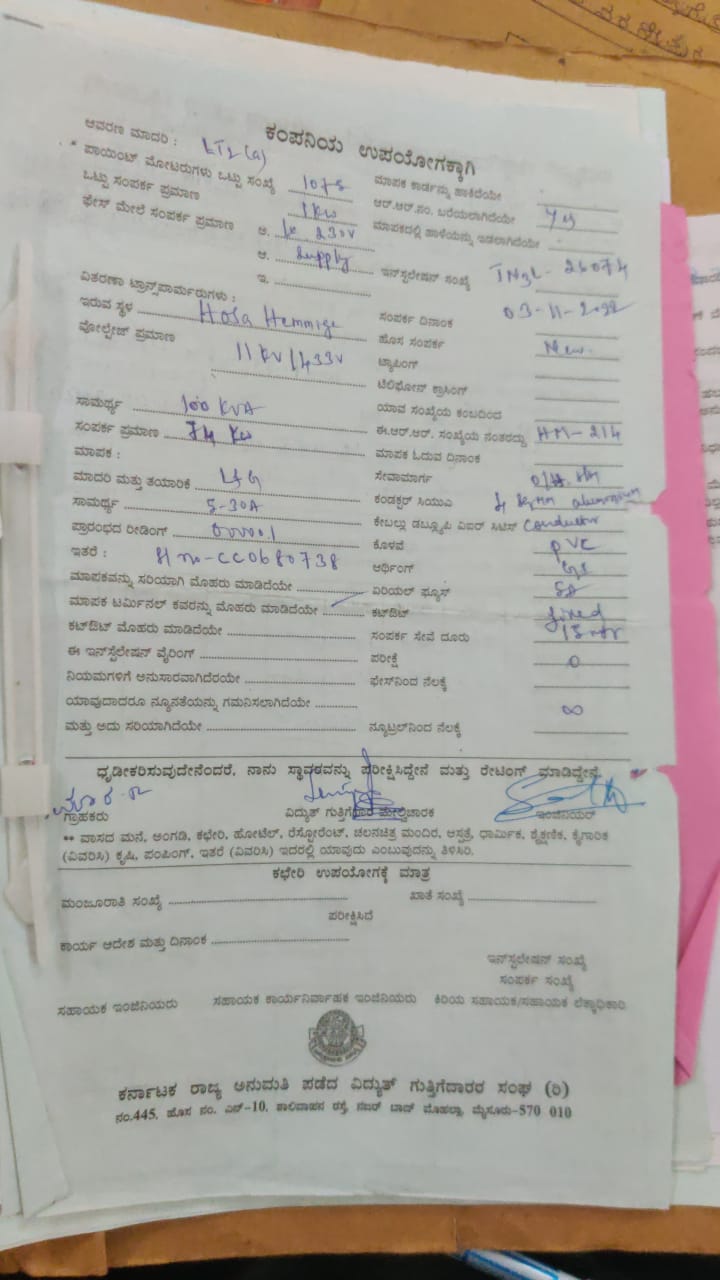 ಕಂಪನಿಯ ಉಪಯೋಗಕ್ಕಾಗಿ
ಆವರಣ ಮಾದರಿ : LT2(a)
ಪಾಯಿಂಟ್ ಮೋಟರುಗಳು ಒಟ್ಟು ಸಂಖ್ಯೆ ಮಾಪಕ ಕಾರ್ಡನ್ನು ಹಾಕಿದೆಯೇ
ಒಟ್ಟು ಸಂಪರ್ಕ ಪ್ರಮಾಣ 1 Kw ಆರ್.ಆರ್.ನಂ. ಬರೆಯಲಾಗಿದೆಯೇ Yes
ಫೇಸ್ ಮೇಲೆ ಸಂಪರ್ಕ ಪ್ರಮಾಣ ಅ. 230V ಮಾಪಕದಲ್ಲಿ ಹಾಳೆಯನ್ನು ಇಡಲಾಗಿದೆಯೇ
ಆ. Supply ಇನ್‌ಸ್ಟಲೇಷನ್ ಸಂಖ್ಯೆ
ಇ.
ವಿತರಣಾ ಟ್ರಾನ್ಸ್‌ಪಾರ್ಮರುಗಳು :
ಇರುವ ಸ್ಥಳ Hosa Hemmige ಸಂಪರ್ಕ ದಿನಾಂಕ
ವೋಲ್ಟೇಜ್ ಪ್ರಮಾಣ 11 KV/433V ಹೊಸ ಸಂಪರ್ಕ New
ಟ್ಯಾಪಿಂಗ್
ಟೆಲಿಫೋನ್ ಕ್ರಾಸಿಂಗ್
ಸಾಮರ್ಥ್ಯ 100 KVA ಯಾವ ಸಂಖ್ಯೆಯ ಕಂಬದಿಂದ
ಸಂಪರ್ಕ ಪ್ರಮಾಣ 74 Kw ಈ.ಆರ್.ಆರ್. ಸಂಖ್ಯೆಯ ನಂತರದ್ದು HM-214
ಮಾಪಕ : ಮಾಪಕ ಓದುವ ದಿನಾಂಕ
ಮಾದರಿ ಮತ್ತು ತಯಾರಿಕೆ L&G ಸೇವಾಮಾರ್ಗ
ಸಾಮರ್ಥ್ಯ 5-30A ಕಂಡಕ್ಟರ್ ಸಿಯುಎ aluminium
ಪ್ರಾರಂಭದ ರೀಡಿಂಗ್ 00000.1 ಕೇಬಲ್ಲು ಡಬ್ಲ್ಯೂಪಿ ಏಐರ್ ಸಿಟಿಸ್ conductor
ಇತರೆ : Sl no-CC0680738 ಕೊಳವೆ PVC
ಮಾಪಕವನ್ನು ಸರಿಯಾಗಿ ಮೊಹರು ಮಾಡಿದೆಯೇ ಆರ್ಥಿಂಗ್
ಮಾಪಕ ಟರ್ಮಿನಲ್ ಕವರನ್ನು ಮೊಹರು ಮಾಡಿದೆಯೇ ಏರಿಯಲ್ ಫ್ಯೂಸ್ 5A
ಕಟ್‌ಔಟ್ ಮೊಹರು ಮಾಡಿದೆಯೇ ಕಟ್‌ಔಟ್ fixed
ಈ ಇನ್‌ಸ್ಟೆಲೇಷನ್ ವೈರಿಂಗ್ ಸಂಪರ್ಕ ಸೇವೆ ದೂರು 15 mtr
ನಿಯಮಗಳಿಗೆ ಅನುಸಾರವಾಗಿದೆರಯೇ ಪರೀಕ್ಷೆ 0
ಯಾವುದಾದರೂ ನ್ಯೂನತೆಯನ್ನು ಗಮನಿಸಲಾಗಿದೆಯೇ ಫೇಸ್‌ನಿಂದ ನೆಲಕ್ಕೆ
ಮತ್ತು ಅದು ಸರಿಯಾಗಿದೆಯೇ ನ್ಯೂಟ್ರಲ್‌ನಿಂದ ನೆಲಕ್ಕೆ ∞
ಧೃಡೀಕರಿಸುವುದೇನೆಂದರೆ, ನಾನು ಸ್ಥಾವರವನ್ನು ಪರೀಕ್ಷಿಸಿದ್ದೇನೆ ಮತ್ತು ರೇಟಿಂಗ್ ಮಾಡಿದ್ದೇನೆ.
ಗ್ರಾಹಕರು ವಿದ್ಯುತ್ ಗುತ್ತಿಗೆದಾರ ಮೇಲ್ವಿಚಾರಕ ಇಂಜಿನಿಯರ್
** ವಾಸದ ಮನೆ, ಅಂಗಡಿ, ಕಛೇರಿ, ಹೋಟೆಲ್, ರೆಸ್ಟೋರೆಂಟ್, ಚಲನಚಿತ್ರ ಮಂದಿರ, ಆಸ್ಪತ್ರೆ, ಧಾರ್ಮಿಕ, ಶೈಕ್ಷಣಿಕ, ಕೈಗಾರಿಕ
(ವಿವರಿಸಿ) ಕೃಷಿ, ಪಂಪಿಂಗ್, ಇತರೆ (ವಿವರಿಸಿ) ಇದರಲ್ಲಿ ಯಾವುದು ಎಂಬುವುದನ್ನು ತಿಳಿಸಿರಿ.
ಕಛೇರಿ ಉಪಯೋಗಕ್ಕೆ ಮಾತ್ರ
ಮಂಜೂರಾತಿ ಸಂಖ್ಯೆ ಖಾತೆ ಸಂಖ್ಯೆ
ಪರೀಕ್ಷಿಸಿದೆ
ಕಾರ್ಯ ಆದೇಶ ಮತ್ತು ದಿನಾಂಕ
ಇನ್‌ಸ್ಟಲೇಷನ್ ಸಂಖ್ಯೆ
ಸಂಪರ್ಕ ಸಂಖ್ಯೆ
ಸಹಾಯಕ ಇಂಜಿನಿಯರು ಸಹಾಯಕ ಕಾರ್ಯನಿರ್ವಾಹಕ ಇಂಜಿನಿಯರು ಕಿರಿಯ ಸಹಾಯಕ/ಸಹಾಯಕ ಲೆಕ್ಕಾಧಿಕಾರಿ
ಕರ್ನಾಟಕ ರಾಜ್ಯ ಅನುಮತಿ ಪಡೆದ ವಿದ್ಯುತ್ ಗುತ್ತಿಗೆದಾರರ ಸಂಘ (ರಿ)
ನಂ.445, ಹೊಸ ನಂ. ಎನ್-10, ಶಾಲಿವಾಹನ ರಸ್ತೆ, ನಜರ್ ಬಾದ್ ಮೊಹಲ್ಲಾ, ಮೈಸೂರು-570 010